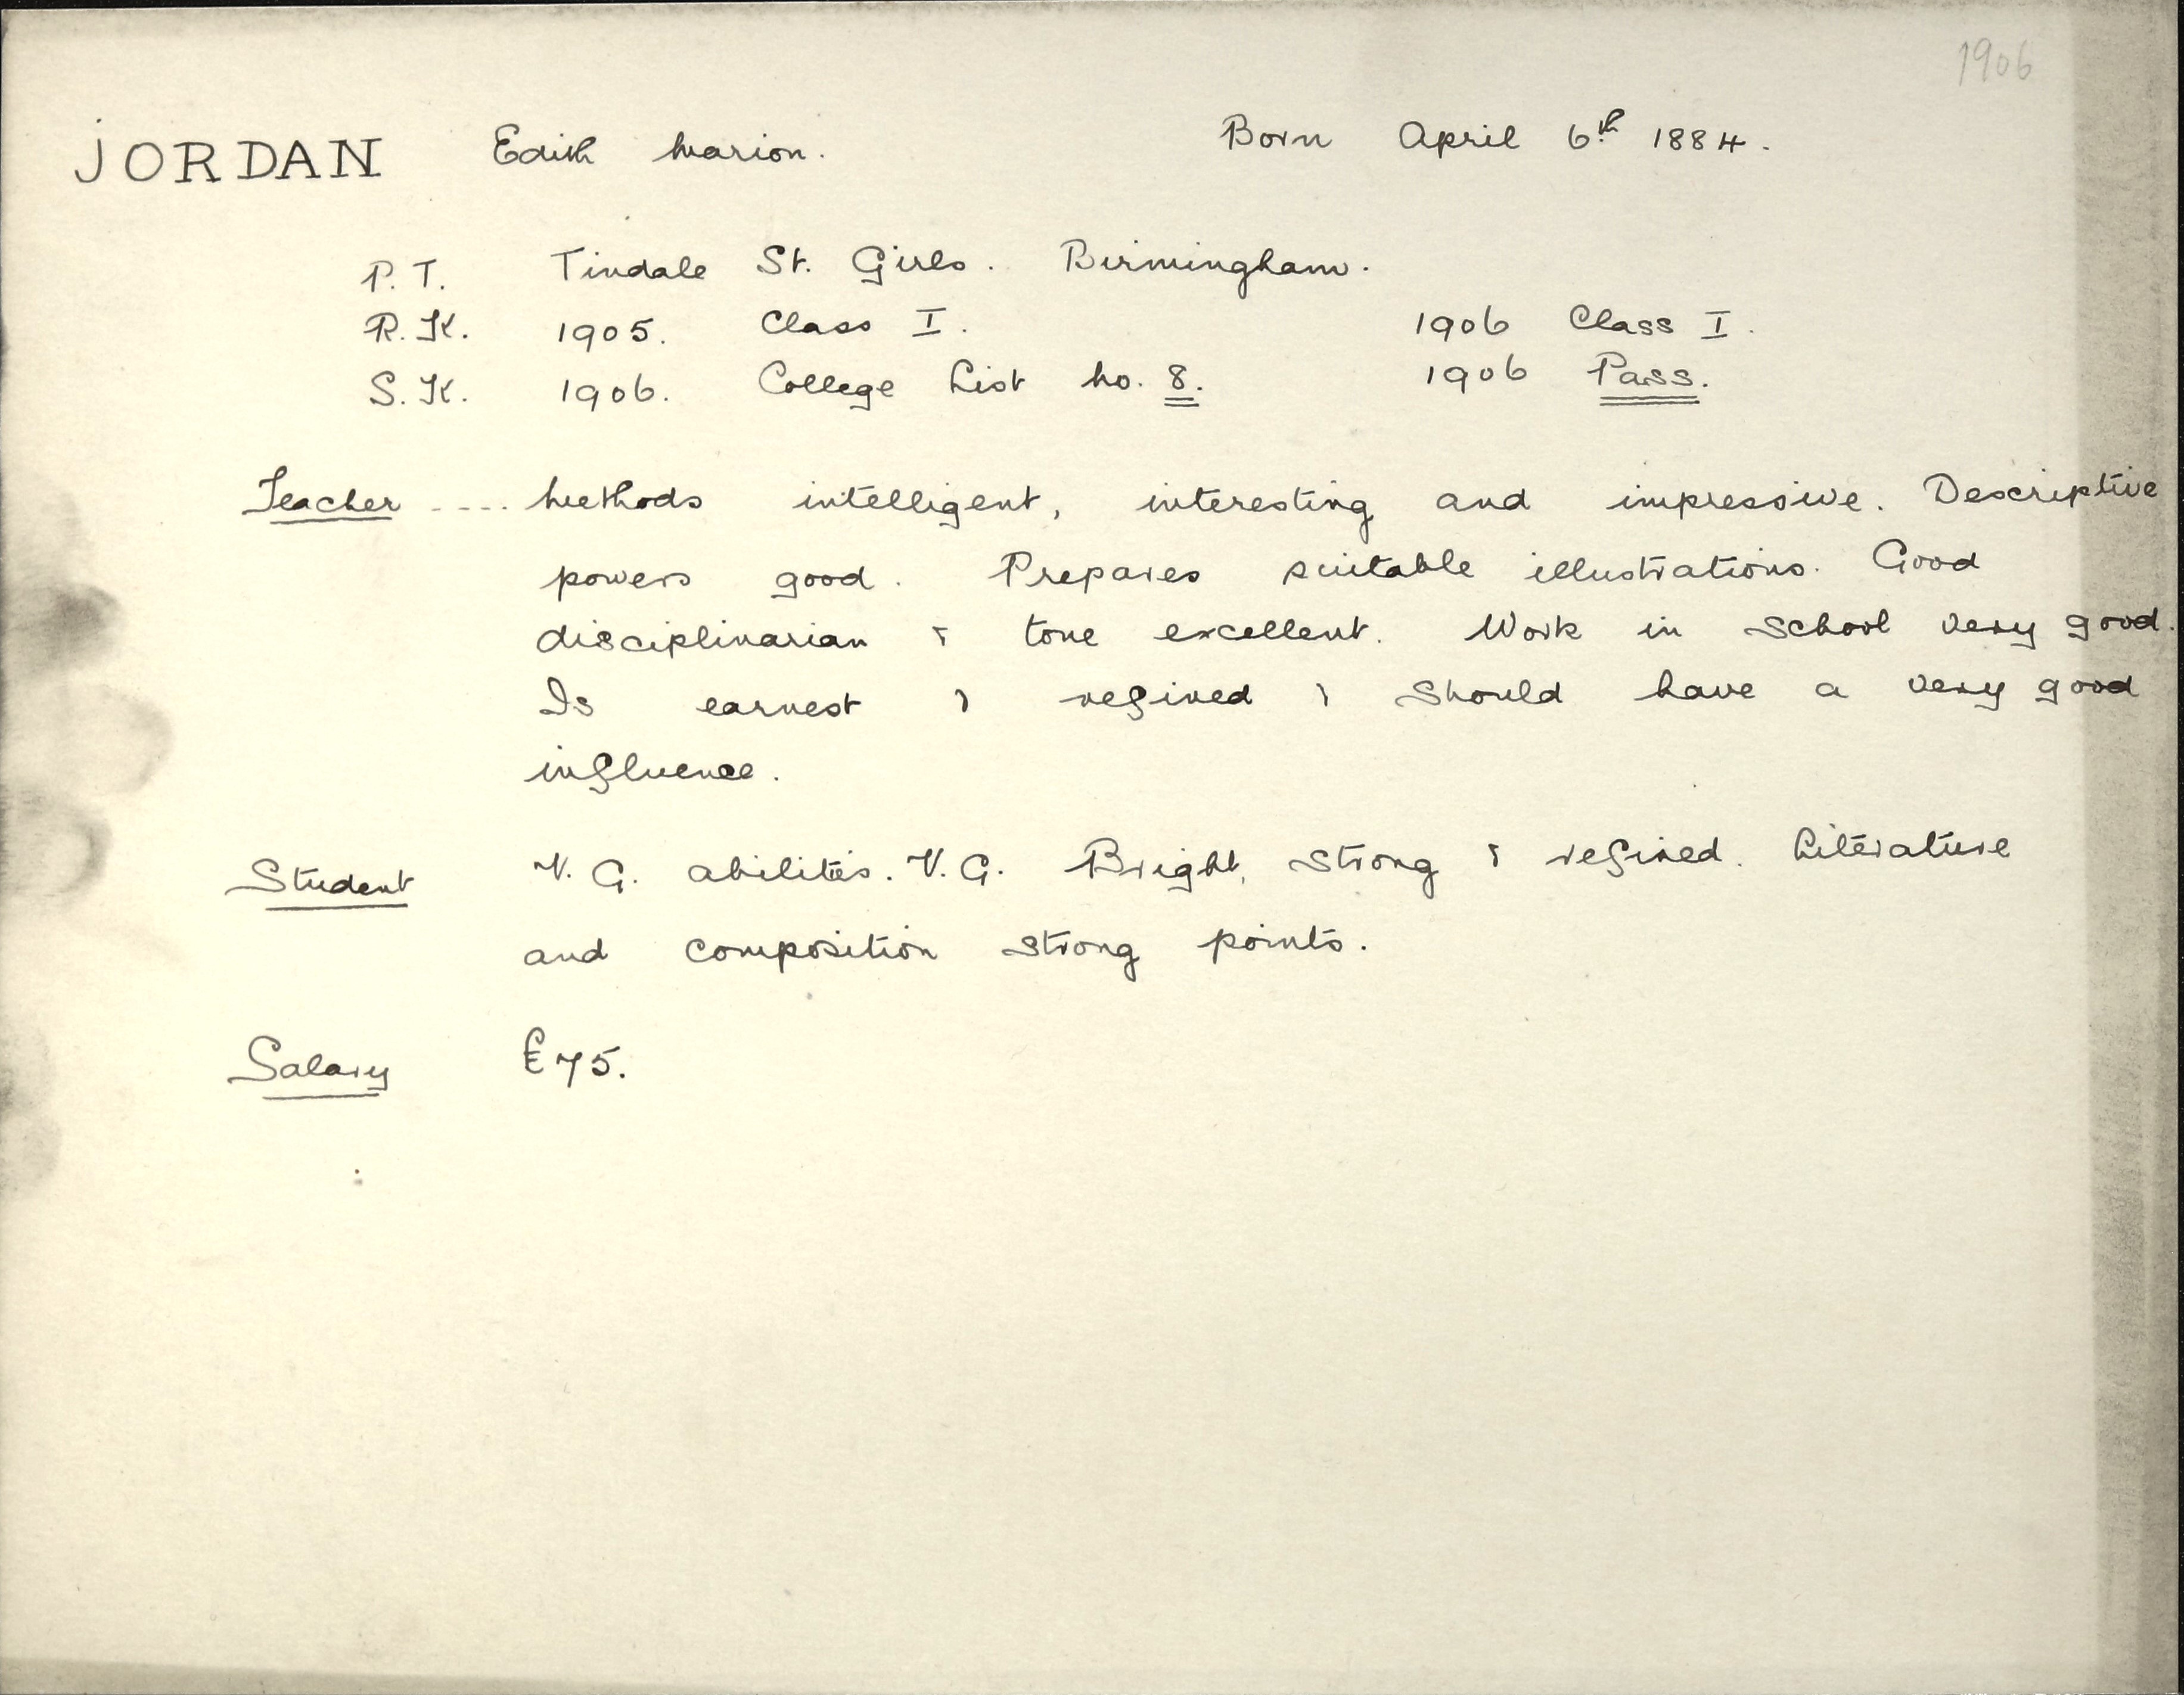 1906
JORDAN Edith Marion. Born April 6th 1884.
P. T. Tindale St. Girls. Birmingham.
R. K. 1905. Class I. 1906 Class I.
S. K. 1906. College List No. 8. 1906 Pass.
Teacher .... Methods intelligent, interesting and impressive. Descriptive
powers good. Prepares suitable illustrations. Good
disciplinarian & tone excellent. Work in school very good.
Is earnest & refined & should have a very good
influence.
Student V. G. abilities. V. G. Bright, strong & refined. Literature
and composition strong points.
Salary £75.